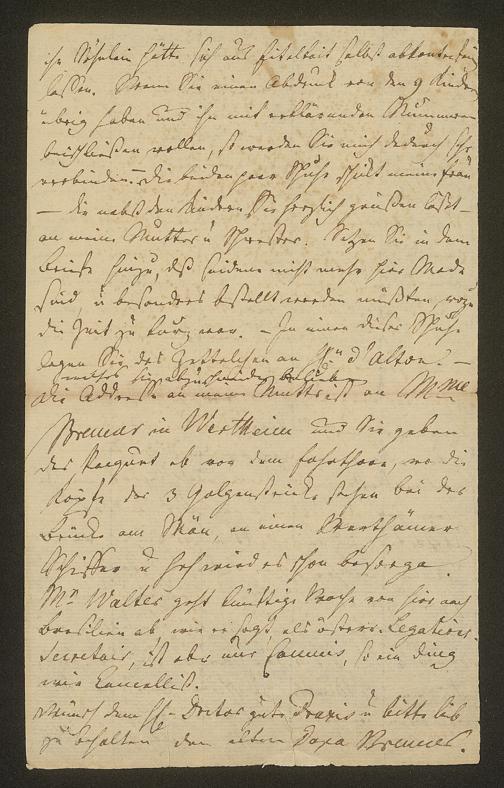 ihr Söhnlein hätte sich aus Eitelkeit selbst abkonterfeien
lassen. Wenn Sie einen Abdruck von den 9 Kindern
übrig haben und ihn mit erklärenden Nummern
beischließen wollen, so werden Sie mich dadurch sehr
verbinden. – Die beiden paar Schuhe schickt meine Frau
– die nebst den Kindern Sie herzlich grüßen läßt –
an meine Mutter u Schwester. Setzen Sie in dem
Briefe hinzu, daß seidene nicht mehr hier Mode
sind, u besonders bestellt werden müßten, wozu
die Zeit zu kurz war. – In einen dieser Schuhe
legen Sie das Zettelchen an Hrn d'Alton. –
welches Sie abzuschneiden belieben
Die Addresse an meine Mutter ist an Mme
Bremer in Wertheim und Sie geben
das Paquet ab vor dem Fahrthore, wo die
Köpfe der 3 Galgenstricke stehen bei der
Brücke am Mäin, an einen Wertheimer
Schiffer u wird es schon besorgen.
Mr Walter geht künftige Woche von hier nach
Brasilien ab, wie er sagt, als östere. Legations-
Secretair, ist aber nur Commis, so ein Ding
wie Cancellist.
Wünsch dem H. Doctor gute Praxis u bitte lieb
zu behalten den alten Papa Bremer.